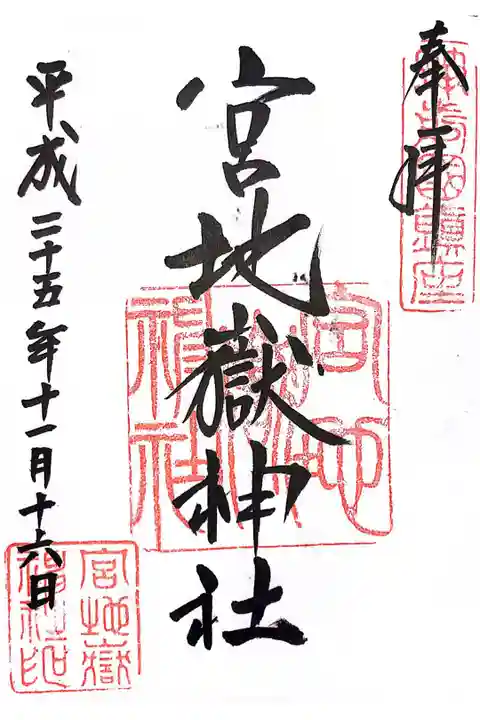 奉拝
宮地嶽神社
平成二十五年十一月十六日
宮地嶽
神社印